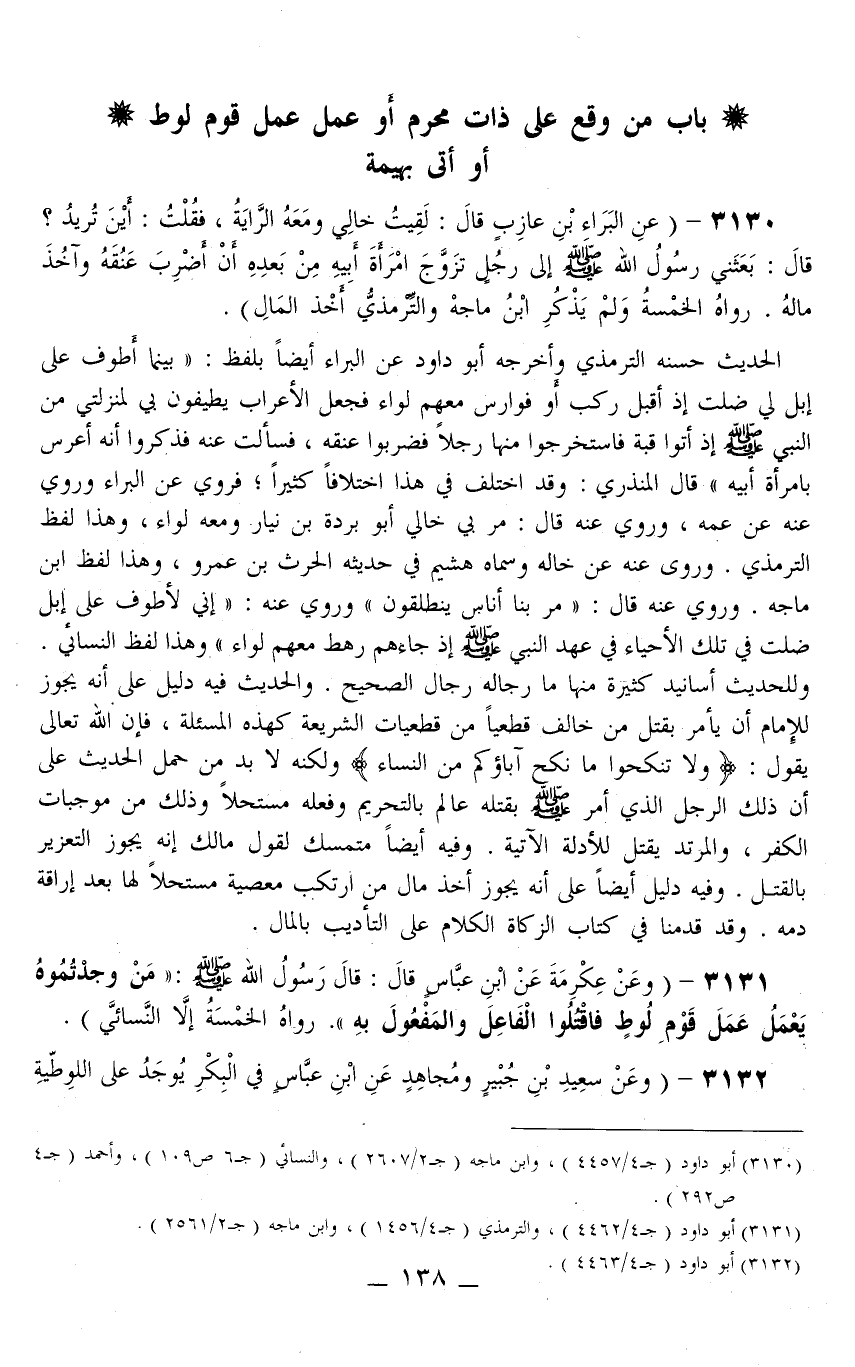 ❋ باب من وقع على ذات محرم أَو عمل عمل قوم لوط ❋
أو أتى بهيمة
٣١٣٠ – ( عنِ البَرَاءِ بْنِ عازِبٍ قالَ : لَقِيتُ خالِي ومَعَهُ الرَّايَةُ ، فقُلْتُ : أَيْنَ تُريدُ ؟
قالَ : بَعَثَني رسُولُ الله ﷺ إلى رجُلٍ تزوَّجَ امْرَأَةَ أَبِيهِ مِنْ بَعدِهِ أَنْ أَضْرِبَ عَنُقَهُ وآخُذَ
مالهُ . رواهُ الخمْسةُ وَلمْ يَذْكُرِ ابْنُ ماجهْ والتِّرمذيُّ أَخْذ المَالِ) .
الحديث حسنه الترمذي وأخرجه أبو داود عن البراء أيضاً بلفظ : « بينما أَطوف على
إبل لي ضلت إذ أقبل ركب أَو فوارس معهم لواء فجعل الأعراب يطيفون بي لمنزلتي من
النبي ﷺ إذ أتوا قبة فاستخرجوا منها رجلاً فضربوا عنقه ، فسألت عنه فذكروا أنه أعرس
بامرأة أبيه » قال المنذري : وقد اختلف في هذا اختلافاً كثيراً ؛ فروي عن البراء وروي
عنه عن عمه ، وروي عنه قال : مر بي خالي أبو بردة بن نيار ومعه لواء ، وهذا لفظ
الترمذي . وروى عنه عن خاله وسماه هشيم في حديثه الحرث بن عمرو ، وهذا لفظ ابن
ماجه . وروي عنه قال : « مر بنا أناس ينطلقون » وروي عنه : « إني لأطوف على إبل
ضلت في تلك الأحياء في عهد النبي ﷺ إذ جاءهم رهط معهم لواء » وهذا لفظ النسائي .
وللحديث أسانيد كثيرة منها ما رجاله رجال الصحيح . والحديث فيه دليل على أنه يجوز
للإمام أن يأمر بقتل من خالف قطعياً من قطعيات الشريعة كهذه المسئلة ، فإن الله تعالى
يقول : ﴿ ولا تنكحوا ما نكح آباؤكم من النساء ﴾ ولكنه لا بد من حمل الحديث على
أن ذلك الرجل الذي أمر ﷺ بقتله عالم بالتحريم وفعله مستحلاً وذلك من موجبات
الكفر ، والمرتد يقتل للأدلة الآتية . وفيه أيضاً متمسك لقول مالك إنه يجوز التعزير
بالقتل . وفيه دليل أيضاً على أنه يجوز أخذ مال من ارتكب معصية مستحلاً لها بعد إراقة
دمه . وقد قدمنا في كتاب الزكاة الكلام على التأديب بالمال .
٣١٣١ – ( وعَنْ عِكْرِمَةَ عَنْ ابْنِ عبَّاسٍ قالَ : قالَ رَسُولُ الله ﷺ :« مَنْ وجدْتُمُوهُ
يَعْمَلُ عَمَلَ قَوْمِ لُوطٍ فاقْتُلُوا الْفَاعِلَ والمَفْعُولَ بهِ ». رواهُ الخَمْسَةُ إلَّا النَّسائيَّ ) .
٣١٣٢ – ( وعَنْ سعِيدِ بْنِ جُبَيْرٍ ومُجاهِدٍ عَنِ ابْنِ عبَّاسٍ في الْبِكْرِ يُوجَدُ على اللوطِّيةِ
(٣١٣٠) أبو داود ( جـ٤/٤٤٥٧ ) ، وابن ماجه ( جـ٢/٢٦٠٧ ) ، والنسائي ( جـ٦ ص١٠٩ ) ، وأحمد ( جـ٤
ص٢٩٢ ) .
(٣١٣١) أبو داود ( جـ٤/٤٤٦٢ ) ، والترمذي ( جـ٤/١٤٥٦ ) ، وابن ماجه ( جـ٢/٢٥٦١ ) .
(٣١٣٢) أبو داود ( جـ٤/٤٤٦٣ ) .
– ١٣٨ –